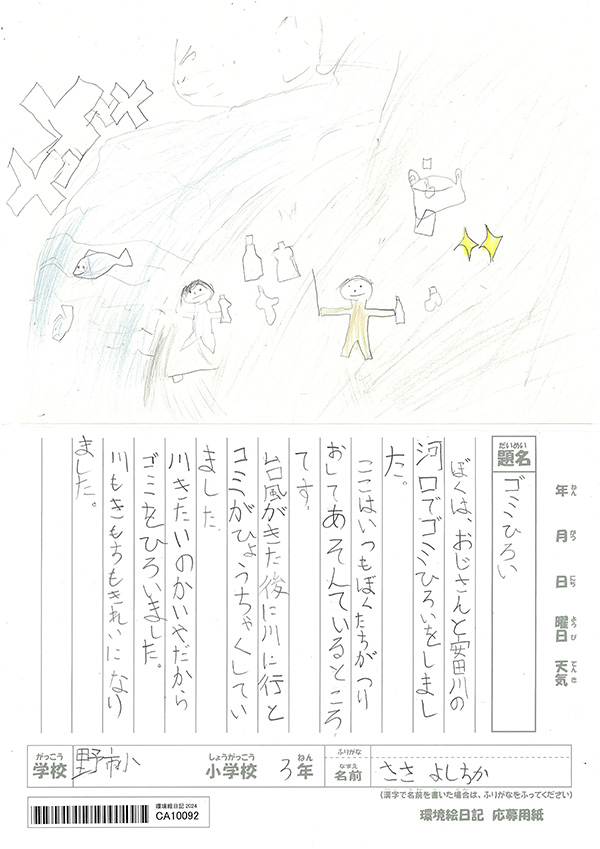 だいめい
題名
ゴミひろい
年 ねん
月 がつ
日 にち
曜日 ようび
天気 てんき
ぼくは、おじさんと安田川の
河口でゴミひろいをしまし
た。
ここはいつもぼくたちがつり
おしてあそんでいるところ
です。
台風がきた後に川に行と
ゴミがひょうちゃくしてい
ました。
川きたいのかいやだから
ゴミをひろいました。
川もきもちもきれいになり
ました。
がっこう
学校
野市小
しょうがっこう
小学校
3
ねん
年
ふりがな
なまえ
名前
ささ よしちか
(漢字で名前を書いた場合は、ふりがなをふってください)
環境絵日記 2024
CA10092
環境絵日記 応募用紙